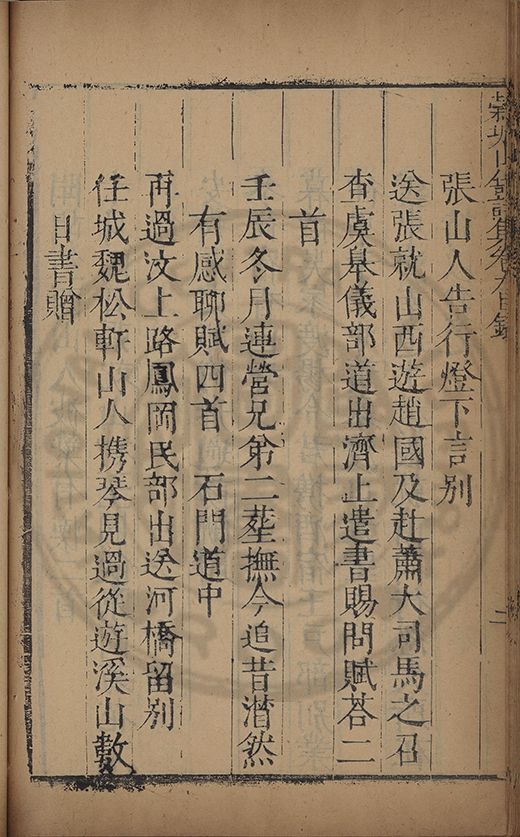 張山人告行燈下言別
送張就山西遊趙國及赴蕭大司馬之召
查虞皋儀部道出濟上遣書賜問賦荅二
首
壬辰冬月連營兄弟二塟撫今追昔潸然
有感聊賦四首　石門道中
再過汶上路鳳岡民部出送河橋留別
任城魏松軒山人携琴見過從遊溪山數
日書贈
卷六目錄
二